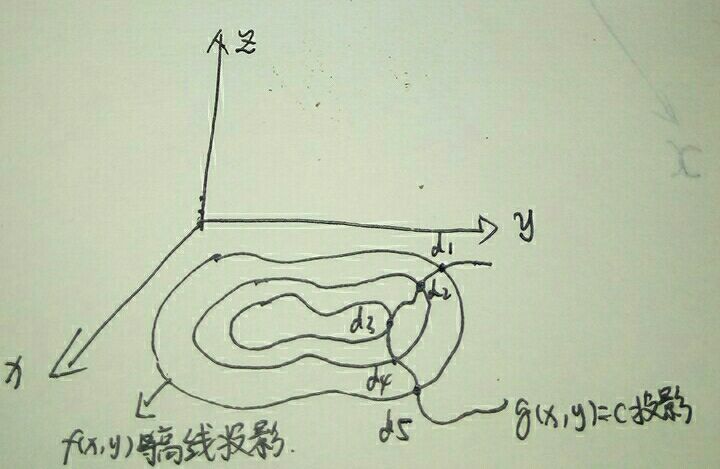 z
y
x
x
d1
d2
d3
d4
d5
g(x,y)=c投影
f(x,y)等高线投影.